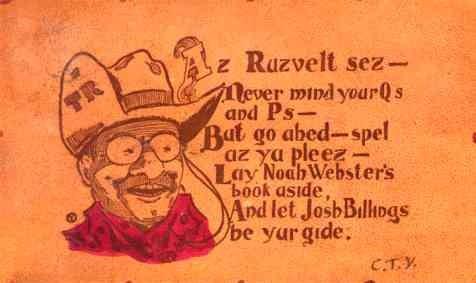 TR
Az Ruzvelt sez—
Never mind your Qs
and Ps—
But go ahed—spel
az ya pleez—
Lay Noah Webster's
book aside,
And let Josh Billings
be yur gide.
C.T.V.